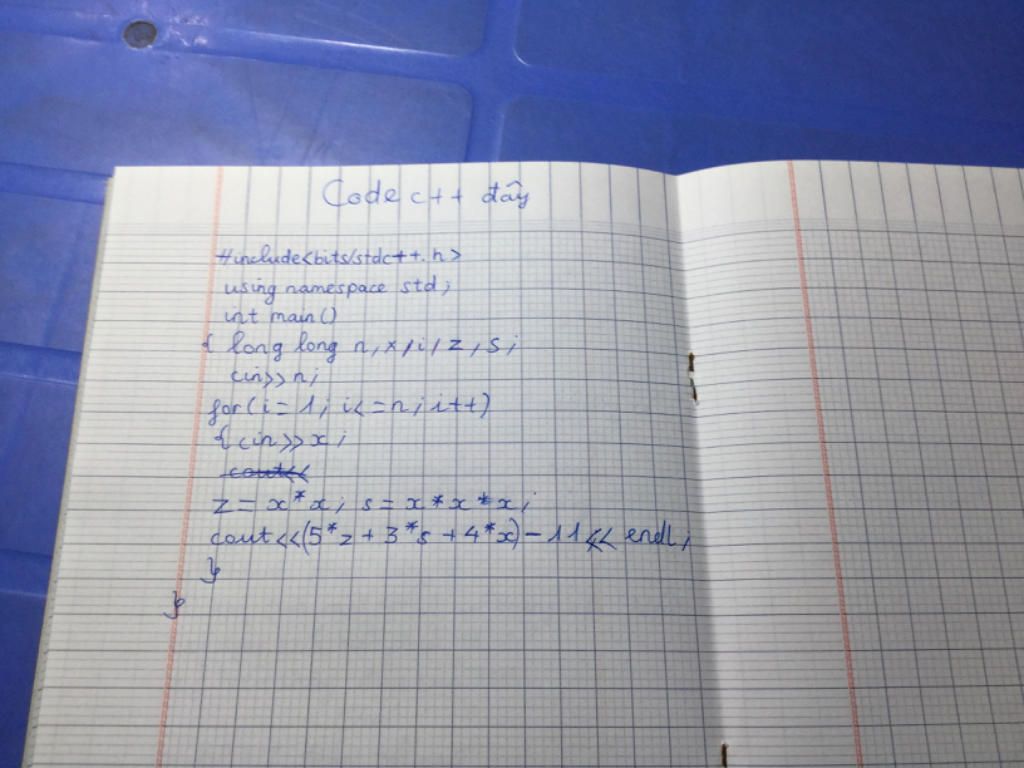 Code c++ đây
#include<bits/stdc++.h>
using namespace std;
int main()
{ long long n,x,i,z,s;
cin>>n;
for(i=1; i<=n; i++)
{cin>>x;
cout<<
z=x*x; s=x*x*x;
cout<<(5*z+3*s+4*x)-11<<endl;
}
}